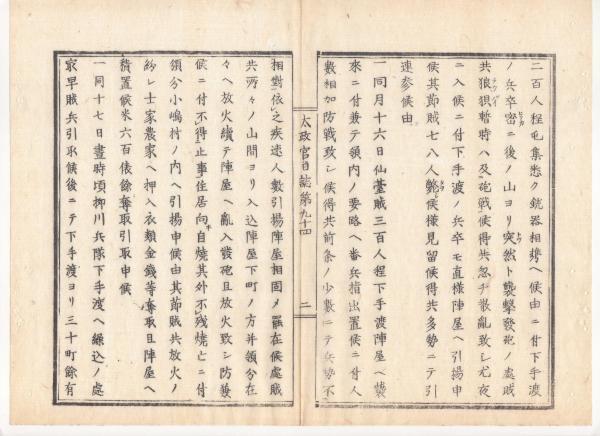 二百人程屯集悉ク銃器相携ヘ候由ニ付下手渡
ノ兵卒密ニ後ノ山ヨリ突然ト襲撃發砲ノ處賊
共狼狽暫時ハ及砲戰候得共忽チ散亂致シ尤夜
ニ入候ニ付下手渡ノ兵卒モ直様陣屋ヘ引揚申
候其節賊七八人斃候様見留候得共多勢ニテ引
連参候由
一同月十六日仙臺賊三百人程下手渡陣屋ヘ襲
來ニ付兼テ領内ノ要略ヘ番兵指出置候ニ付人
數相加防戰致シ候得共前条ノ少數ニテ兵勢不
太政官日誌第九十四
二
相對依之疾速人數引揚陣屋相固メ罷在候處賊
共所々ノ山間ヨリ入込陣屋下町ノ方并領分在
々ヘ放火續テ陣屋ヘ亂入發砲且放火致シ防兼
候ニ付不得止事住居向自燒其外不殘燒亡ニ付
領分小嶋村ノ内ヘ引揚申候由其節賊共放火ノ
紛レ士家農家ヘ押入衣類金錢等奪取且陣屋ヘ
積置候米六百俵餘奪取引取申候
一同十七日晝時頃柳川兵隊下手渡ヘ繰込ノ處
最早賊兵引取候後ニテ下手渡ヨリ三十町餘有